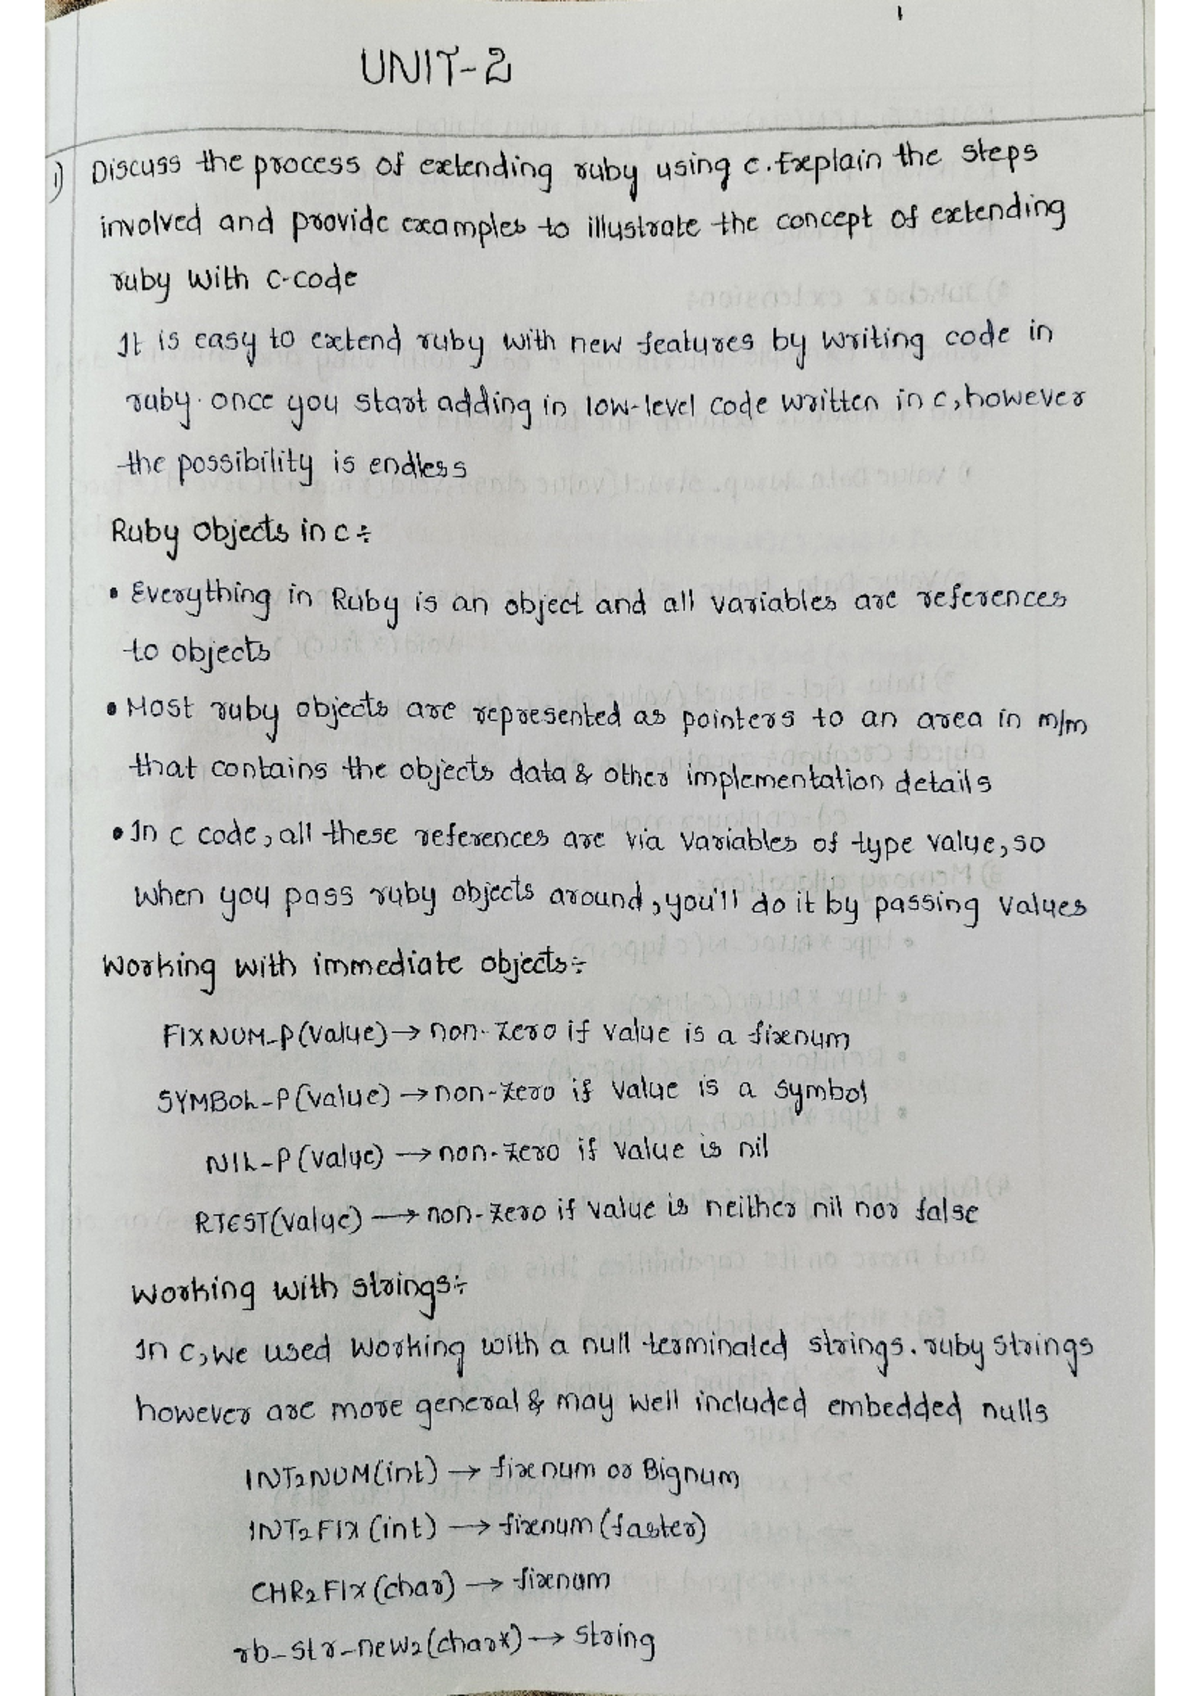 1
UNIT-2
1) Discuss the process of extending ruby using c. Explain the steps
involved and provide examples to illustrate the concept of extending
ruby with c-code
It is easy to extend ruby with new features by writing code in
ruby. once you start adding in low-level code written in c, however
the possibility is endless
Ruby objects in c ÷
• Everything in Ruby is an object and all variables are references
to objects
• Most ruby objects are represented as pointers to an area in m/m
that contains the objects data & other implementation details
• In c code, all these references are via variables of type value, so
when you pass ruby objects around, you'll do it by passing values
Working with immediate objects ÷
FIXNUM_P(value) → non-zero if value is a fixnum
SYMBOL_P(value) → non-zero if value is a symbol
NIL_P(value) → non-zero if value is nil
RTEST(value) → non-zero if value is neither nil nor false
Working with strings ÷
In c, we used working with a null terminated strings. ruby strings
however are more general & may well included embedded nulls
INT2NUM(int) → fixnum or Bignum
INT2FIX(int) → fixnum (faster)
CHR2FIX(char) → fixnum
rb_str_new2(char*) → string